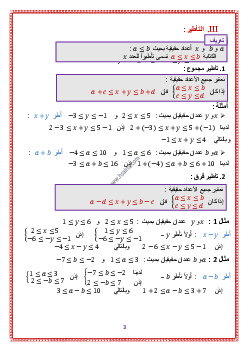 III. التأطير :
تعريف
a و b و x أعداد حقيقية بحيث a ≤ b :
الكتابة a ≤ x ≤ b تسمى تأطيرا للعدد x
1. تأطير مجموع :
نعتبر جميع الأعداد حقيقية :
إذا كان { a ≤ x ≤ b ، c ≤ y ≤ d فإن a + c ≤ x + y ≤ b + d
أمثلة :
x و y عددان حقيقيان بحيث : 2 ≤ x ≤ 5 و −3 ≤ y ≤ −1 أطر x + y :
لدينا 2 + (−3) ≤ x + y ≤ 5 + (−1) إذن 2 − 3 ≤ x + y ≤ 5 − 1
وبالتالي −1 ≤ x + y ≤ 4
a و b عددان حقيقيان بحيث : 1 ≤ a ≤ 6 و −4 ≤ b ≤ 10 أطر a + b :
لدينا 1 + (−4) ≤ a + b ≤ 6 + 10 إذن −3 ≤ a + b ≤ 16
2. تأطير فرق :
نعتبر جميع الأعداد حقيقية :
إذا كان { a ≤ x ≤ b ، c ≤ y ≤ d فإن a − d ≤ x − y ≤ b − c
مثال 1 : x و y عددان حقيقيان بحيث : 2 ≤ x ≤ 5 و 1 ≤ y ≤ 6
أطر x − y : أولا نأطر −y { 1 ≤ y ≤ 6 ، −6 ≤ −y ≤ −1 إذن { 2 ≤ x ≤ 5 ، −6 ≤ −y ≤ −1
إذن 2 − 6 ≤ x − y ≤ 5 − 1 وبالتالي −4 ≤ x − y ≤ 4
مثال 2 : a و b عددان حقيقيان بحيث : 1 ≤ a ≤ 3 و −7 ≤ b ≤ −2
أطر a − b : أولا نأطر −b لدينا { −7 ≤ b ≤ −2 ، 2 ≤ −b ≤ 7 إذن { 1 ≤ a ≤ 3 ، 2 ≤ −b ≤ 7
إذن 1 + 2 ≤ a − b ≤ 3 + 7 وبالتالي 3 ≤ a − b ≤ 10
3